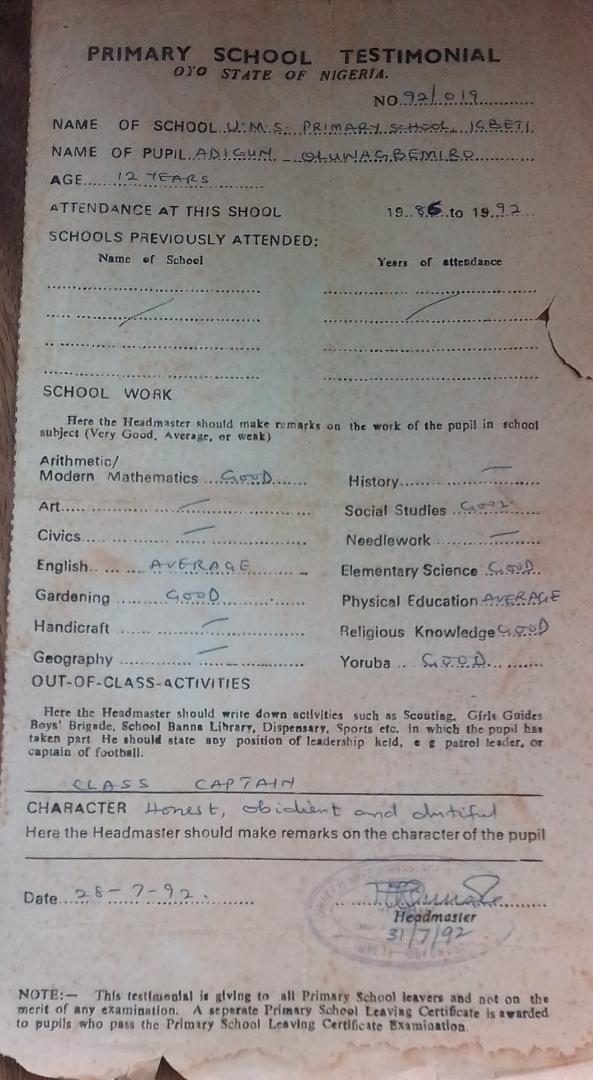 PRIMARY SCHOOL TESTIMONIAL
OYO STATE OF NIGERIA.
NO 92/019
NAME OF SCHOOL U.M.S. PRIMARY SCHOOL, IGBETI
NAME OF PUPIL ADIGUN OLUWAGBEMIRO
AGE 12 YEARS
ATTENDANCE AT THIS SHOOL 1986 to 1992
SCHOOLS PREVIOUSLY ATTENDED:
Name of School Years of attendance
SCHOOL WORK
Here the Headmaster should make remarks on the work of the pupil in school
subject (Very Good, Average, or weak)
Arithmetic/
Modern Mathematics GOOD History
Art Social Studies GOOD
Civics Needlework
English AVERAGE Elementary Science GOOD
Gardening GOOD Physical Education AVERAGE
Handicraft Religious Knowledge GOOD
Geography Yoruba GOOD
OUT-OF-CLASS-ACTIVITIES
Here the Headmaster should write down activities such as Scouting, Girls Guides
Boys' Brigade, School Banna Library, Dispensary, Sports etc. in which the pupil has
taken part He should state any position of leadership held, e g patrol leader, or
captain of football.
CLASS CAPTAIN
CHARACTER Honest, obidient and dutiful
Here the Headmaster should make remarks on the character of the pupil
Date 28-7-92.
Headmaster
31/7/92
NOTE:— This testimonial is giving to all Primary School leavers and not on the
merit of any examination. A separate Primary School Leaving Certificate is awarded
to pupils who pass the Primary School Leaving Certificate Examination.